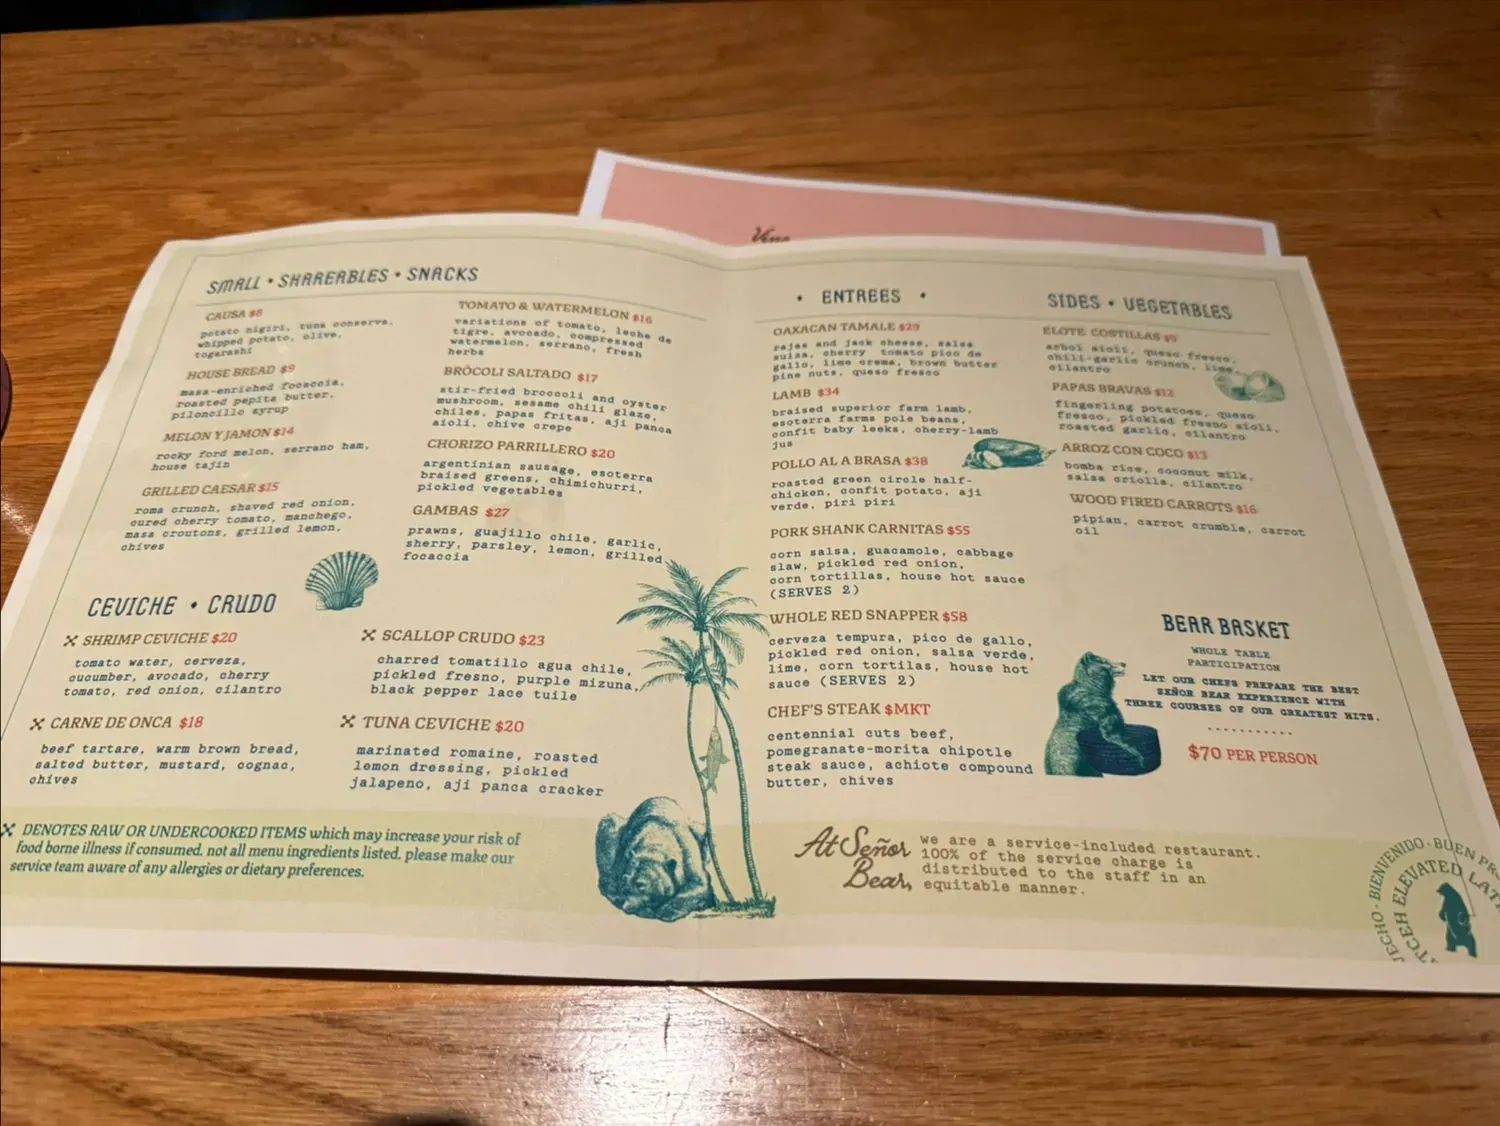 SMALL • SHAREABLES • SNACKS
CAUSA $8
potato nigiri, tuna conserva,
whipped potato, olive,
togarashi
HOUSE BREAD $9
masa-enriched focaccia,
roasted pepita butter,
piloncillo syrup
MELON Y JAMON $14
rocky ford melon, serrano ham,
house tajin
GRILLED CAESAR $15
roma crunch, shaved red onion,
cured cherry tomato, manchego,
masa croutons, grilled lemon,
chives
TOMATO & WATERMELON $16
variations of tomato, leche de
tigre, avocado, compressed
watermelon, serrano, fresh
herbs
BRÓCOLI SALTADO $17
stir-fried broccoli and oyster
mushroom, sesame chili glaze,
chiles, papas fritas, aji panca
aioli, chive crepe
CHORIZO PARRILLERO $20
argentinian sausage, esoterra
braised greens, chimichurri,
pickled vegetables
GAMBAS $27
prawns, guajillo chile, garlic,
sherry, parsley, lemon, grilled
focaccia
CEVICHE • CRUDO
SHRIMP CEVICHE $20
tomato water, cerveza,
cucumber, avocado, cherry
tomato, red onion, cilantro
CARNE DE ONCA $18
beef tartare, warm brown bread,
salted butter, mustard, cognac,
chives
SCALLOP CRUDO $23
charred tomatillo agua chile,
pickled fresno, purple mizuna,
black pepper lace tuile
TUNA CEVICHE $20
marinated romaine, roasted
lemon dressing, pickled
jalapeno, aji panca cracker
DENOTES RAW OR UNDERCOOKED ITEMS which may increase your risk of
food borne illness if consumed. not all menu ingredients listed. please make our
service team aware of any allergies or dietary preferences.
• ENTREES •
OAXACAN TAMALE $29
rajas and jack cheese, salsa
suiza, cherry tomato pico de
gallo, lime crema, brown butter
pine nuts, queso fresco
LAMB $34
braised superior farm lamb,
esoterra farms pole beans,
confit baby leeks, cherry-lamb
jus
POLLO AL A BRASA $38
roasted green circle half-
chicken, confit potato, aji
verde, piri piri
PORK SHANK CARNITAS $55
corn salsa, guacamole, cabbage
slaw, pickled red onion,
corn tortillas, house hot sauce
(SERVES 2)
WHOLE RED SNAPPER $58
cerveza tempura, pico de gallo,
pickled red onion, salsa verde,
lime, corn tortilas, house hot
sauce (SERVES 2)
CHEF'S STEAK $MKT
centennial cuts beef,
pomegranate-morita chipotle
steak sauce, achiote compound
butter, chives
SIDES • VEGETABLES
ELOTE COSTILLAS $9
arbol aioli, queso fresco,
chili-garlic crunch, lime,
cilantro
PAPAS BRAVAS $12
fingerling potatoes, queso
fresco, pickled fresno aioli,
roasted garlic, cilantro
ARROZ CON COCO $13
bomba rice, coconut milk,
salsa criolla, cilantro
WOOD FIRED CARROTS $16
pipian, carrot crumble, carrot
oil
BEAR BASKET
WHOLE TABLE
PARTICIPATION
LET OUR CHEFS PREPARE THE BEST
SEÑOR BEAR EXPERIENCE WITH
THREE COURSES OF OUR GREATEST HITS.
$70 PER PERSON
At Señor
Bear,
we are a service-included restaurant.
100% of the service charge is
distributed to the staff in an
equitable manner.
BIENVENIDO · BUEN
ELEVATED